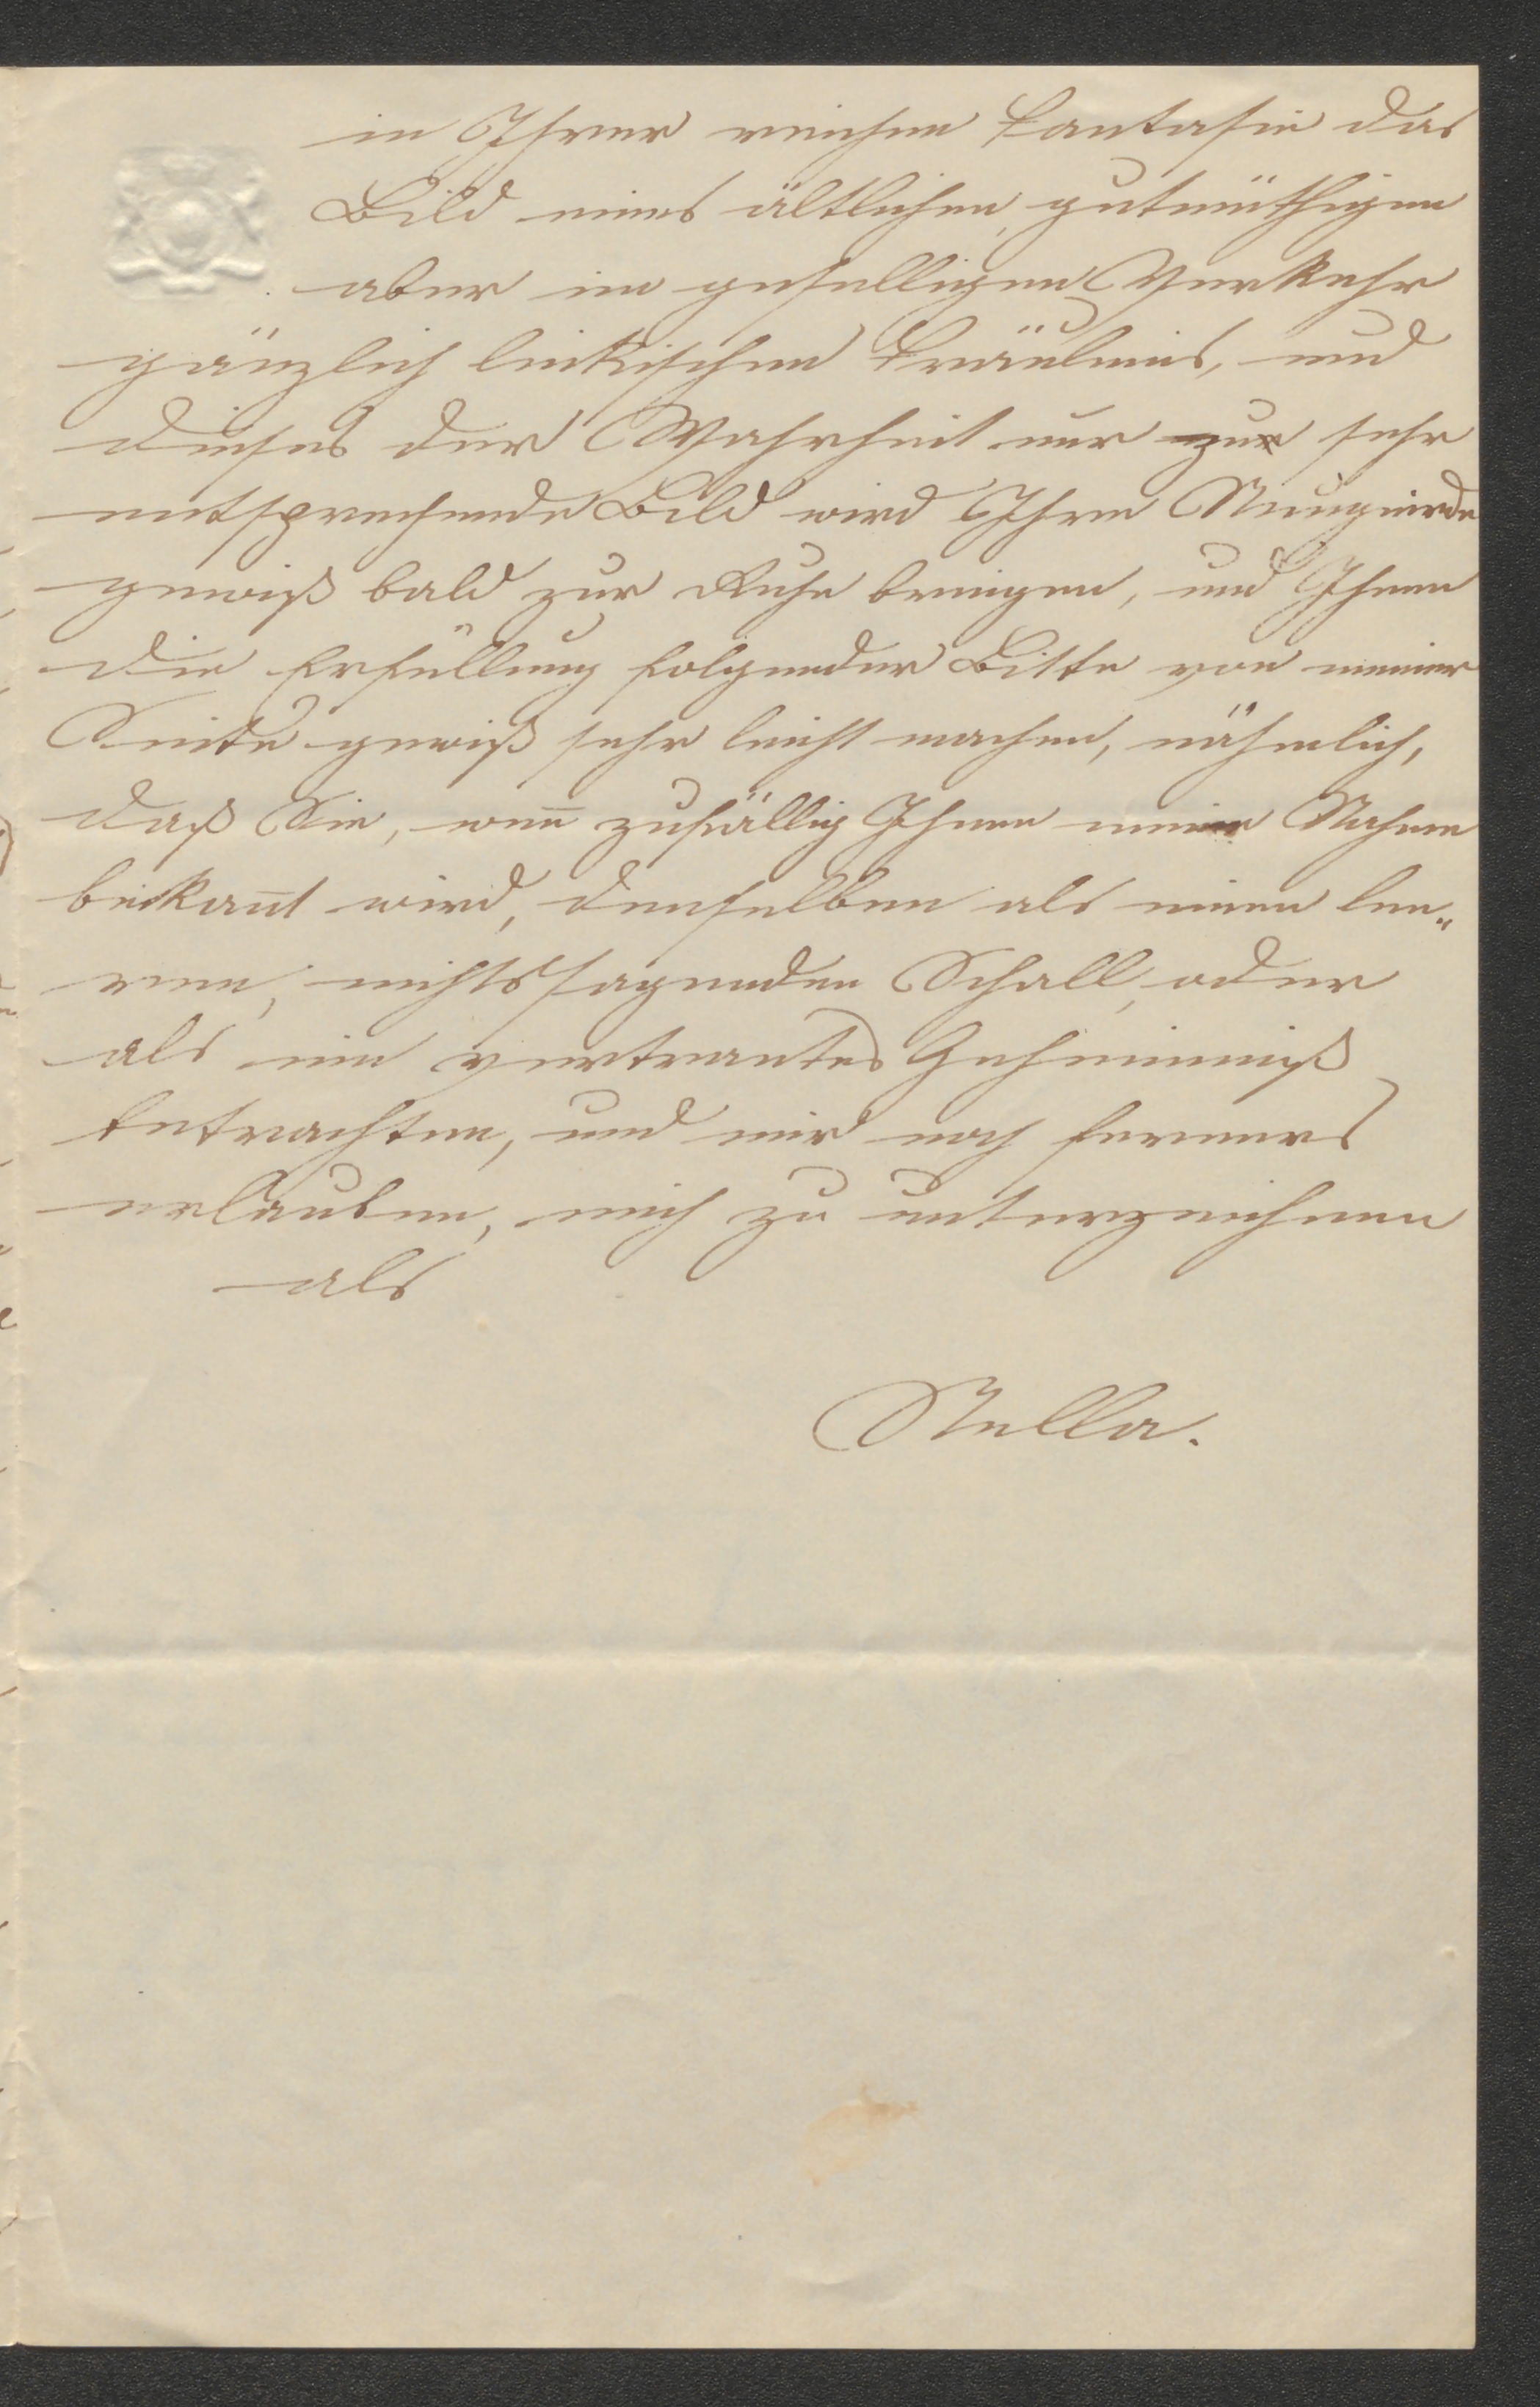 in Ihrer reichen Fantasie das
Bild eines ältlichen, gutmüthigen
aber im geselligen Verkehr
gänzlich linkischen Fräuleins, und
dieses der Wahrheit nur zu sehr
entsprechende Bild wird Ihre Neugierde
gewiß bald zur Ruhe bringen, und Ihnen
die Erfüllung folgender Bitte von meiner
Seite gewiß sehr leicht machen, nähmlich,
daß Sie, wen̅ zufällig Ihnen mein Nahme
bekan̅t wird, denselben als einen lee„
ren, nichtssagenden Schall, oder
als ein vertrautes Geheimniß
betrachten, und mir noch ferners
erlauben, mich zu unterzeichnen
als
Stella.